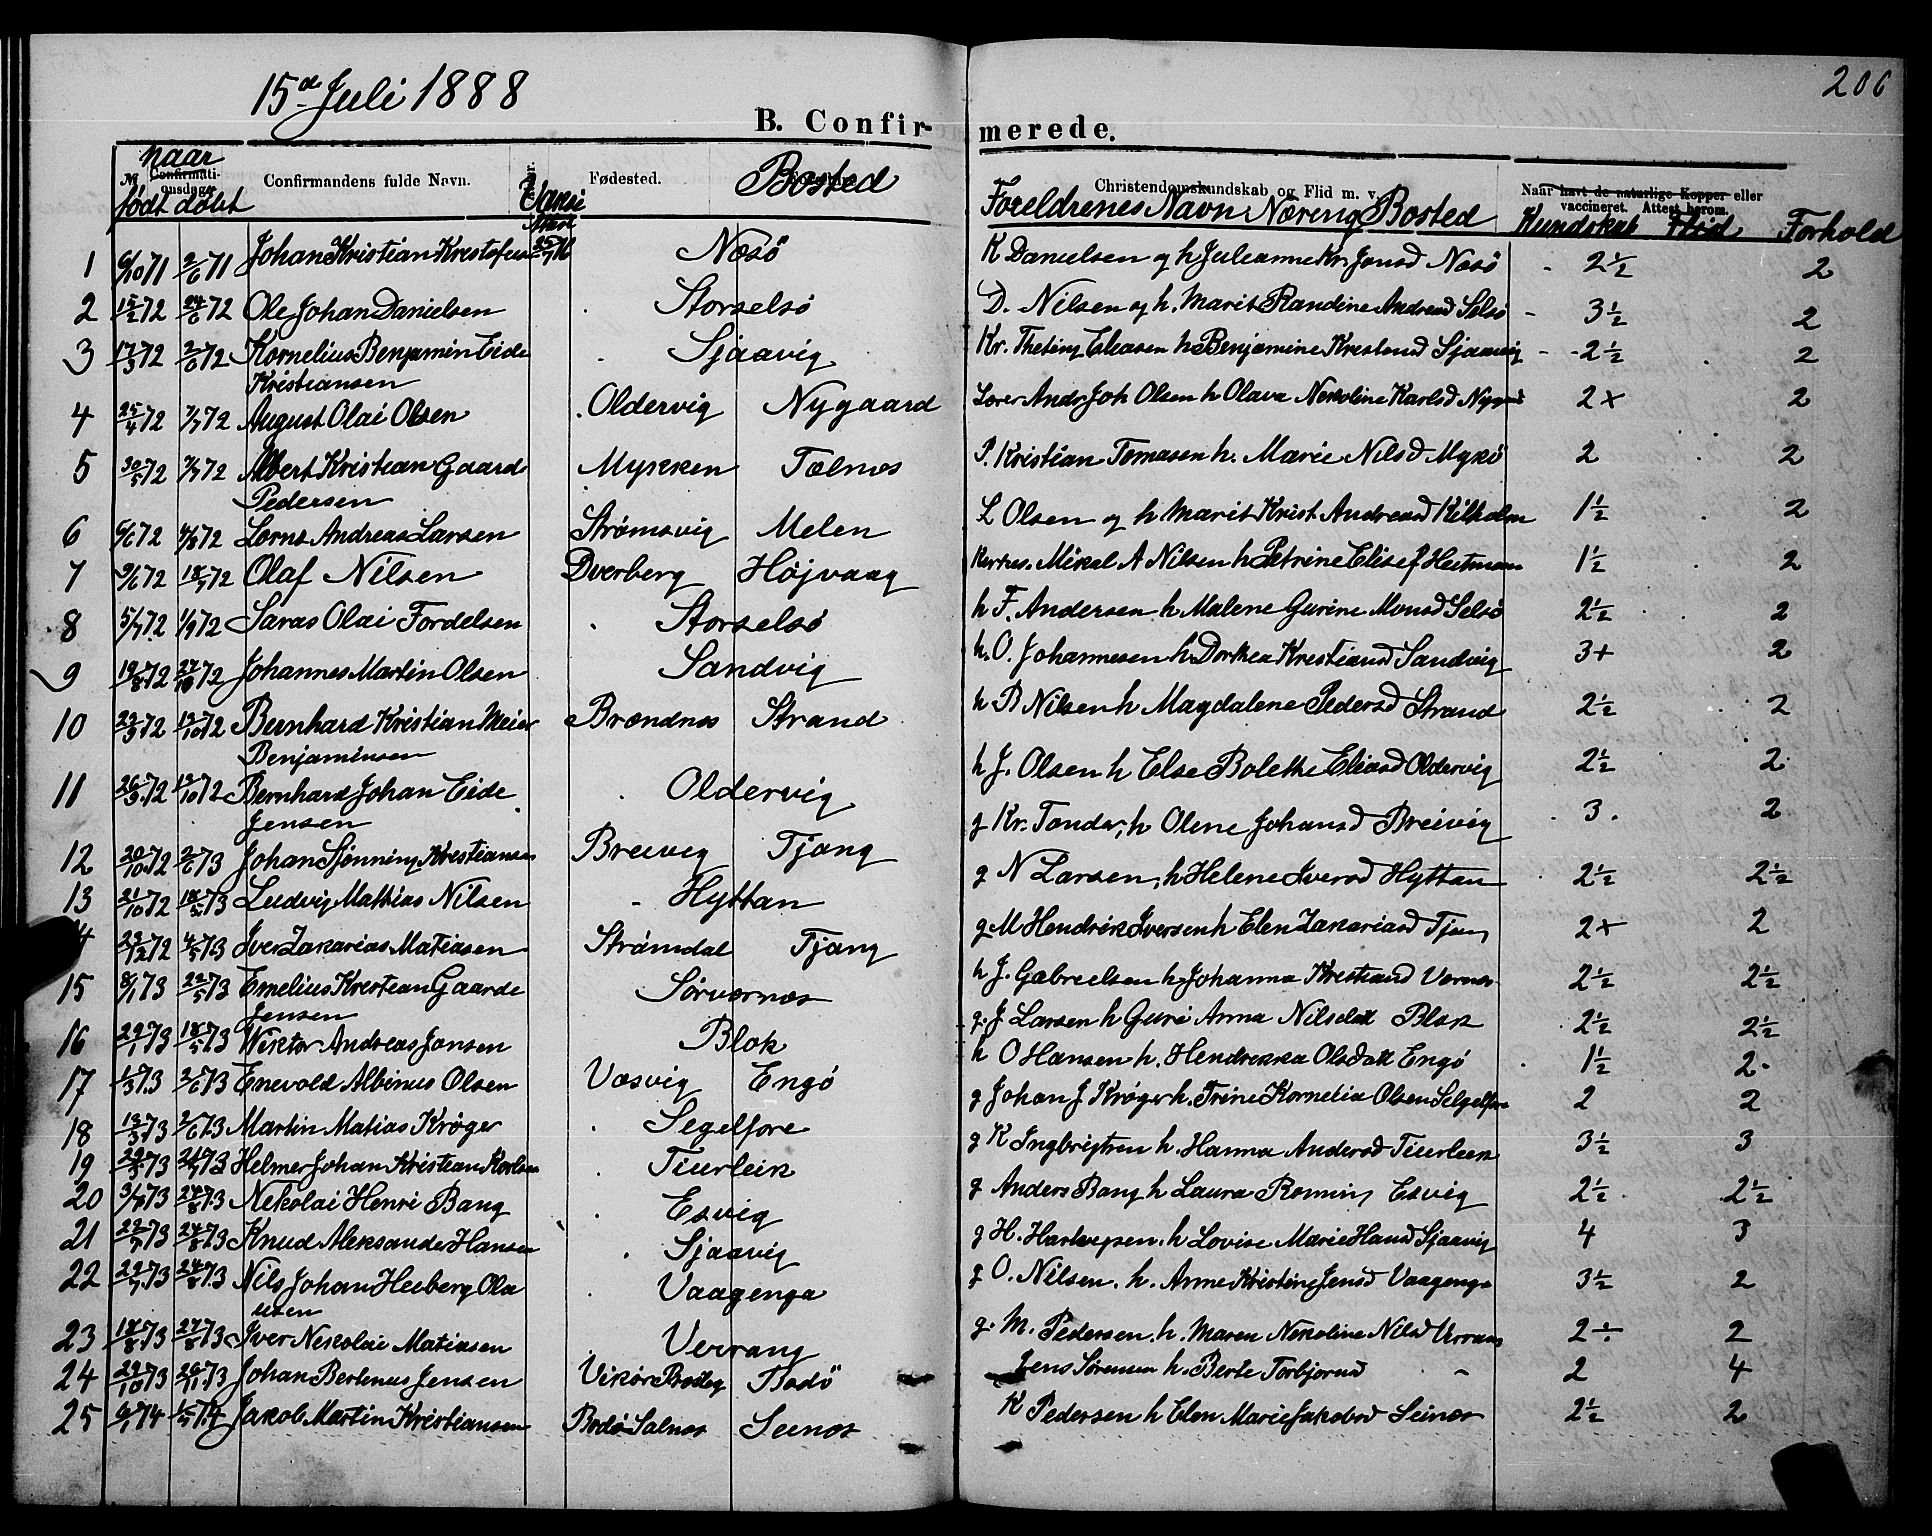 15de Juli 1888
206
B. Confirmerede.
Naar født døbt
Confirmandens fulde Navn.
Fødested.
Bosted
Christendomskundskab og Flid m. v.
Foreldrenes Navn Næring Bosted
Naar havt de naturlige Kopper eller
vaccineret. Attest herom.
Kundskab Flid Forhold
1 6/10 71 2/6 71 Johan Kristian Kristofersen Næsø K Danielsen og h Julianne Kr. Jonsd Næsø 2 1/2 2
2 15/2 72 24/6 72 Ole Johan Danielsen Storselsø D. Nilsen og h. Marit Randine Andread Selsø 3 1/2 2
3 17/3 72 2/6 72 Kornelius Benjamin Eide Sjaavig Kr. Eleasen h Benjamine Sjaavig 2 1/2 2
Kristiansen
4 25/4 72 7/7 72 August Olai Olsen Oldervig Nygaard Lærer Andr Joh Olsen h Olava Nekoline Karlsd 2+ 2
5 30/5 72 7/7 72 Albert Kristian Gaard Mykken Tælnes P. Kristian Tomasen h. Marie Nilsd Mykø 2 2
Pedersen
6 6/6 72 Lorns Andreas Larsen Strømsvig Melen L Olsen og h Marit Krist Andread 1 1/2 2
7 9/6 72 72 Olaf Nilsen Dverberg Højvaag Mikal A Nilsen h Petrine Elisef Heitmann 1 1/2 2
8 5/7 72 1/9 72 Saras Olai Fordelsen Storselsø h F. Andersen h Malene Gurine Monsd Selsø 2 1/2 2
9 19/8 72 27/10 72 Johannes Martin Olsen Sandvig h. O. Johannesen h. Dorthea Kristiansd Sandvig 3+ 2
10 72 72 Bernhard Kristian Meier Brændnes Strand h B Nilsen h Magdalene Pedersd Strand 2 1/2 2
Benjaminsen
11 26/9 72 72 Bernhard Johan Eide Oldervig h J. Olsen h Else Bolette Eliasd Oldervig 2 1/2 2
Jensen
12 20/10 72 2/6 73 Johan Sjønning Kristiansen Breivig Tjong g Kr. Tonder, h Olene Johansd Breivig 3 2
13 21/10 72 18/5 73 Ludvig Mathias Nilsen Hyttan g N Larsen, h Helene Iversd Hyttan 2 1/2 2 1/2
14 72 4/5 73 Iver Zakarias Matiasen Strømdal Tjong g M Hendrik Iversen h Elen Zakariasd Tjong 2+ 2
15 8/1 73 22/5 73 Emelius Kristian Gaarde Sørværnes h J. Gabrielsen h Johanna Kristiansd Vernes 2 1/2 2 1/2
Jensen
16 29/1 73 18/5 73 Wiktor Andreas Jonsen Blok g. J Larsen h Guri Anna Nilsdatt Blok 2 1/2 2 1/2
17 1/3 73 2/6 73 Enevold Albinus Olsen Væsvig Engø h O Hansen h. Hendrikka Olsdatt Engø 1 1/2 2
18 13/3 73 2/6 73 Martin Matias Krøger Segelfore g Johan J Krøger h. Trine Kornelia Olsen Selgelfore 2 2
19 73 73 Helmer Johan Kristian Karlsen Teurleik g K Ingbrigtsen h. Hanna Andersd Teurleik 3 1/2 3
20 73 24/8 73 Nekolai Henri Bang Esvig g Anders Bang h Laura Rønning Esvig 2 1/2 2 1/2
21 22/7 73 24/8 73 Knud Aleksander Hansen Sjaavig g H. Hartvigsen. h Lovise Marie Hansd Sjaavig 4 3
22 29/7 73 24/8 73 Nils Johan Heeberg Ola Vaagenga g O. Nilsen. h. Anne Kristine Jensd Vaagenga 3 1/2 2
usen
23 73 73 Iver Nekolai Matiasen Verrang g. M. Pedersen. h. Maren Nekoline Nilsd 2 ÷ 2
24 29/10 73 73 Johan Bertenus Jensen Vikør Bodø Jens Sørensen h. Berte Torbjørnsd 2 4
25 74 74 Jakob Martin Kristiansen Bodø Salnes Seines K Pedersen h Elen Marie Jakobsd Seines 2 1/2 2